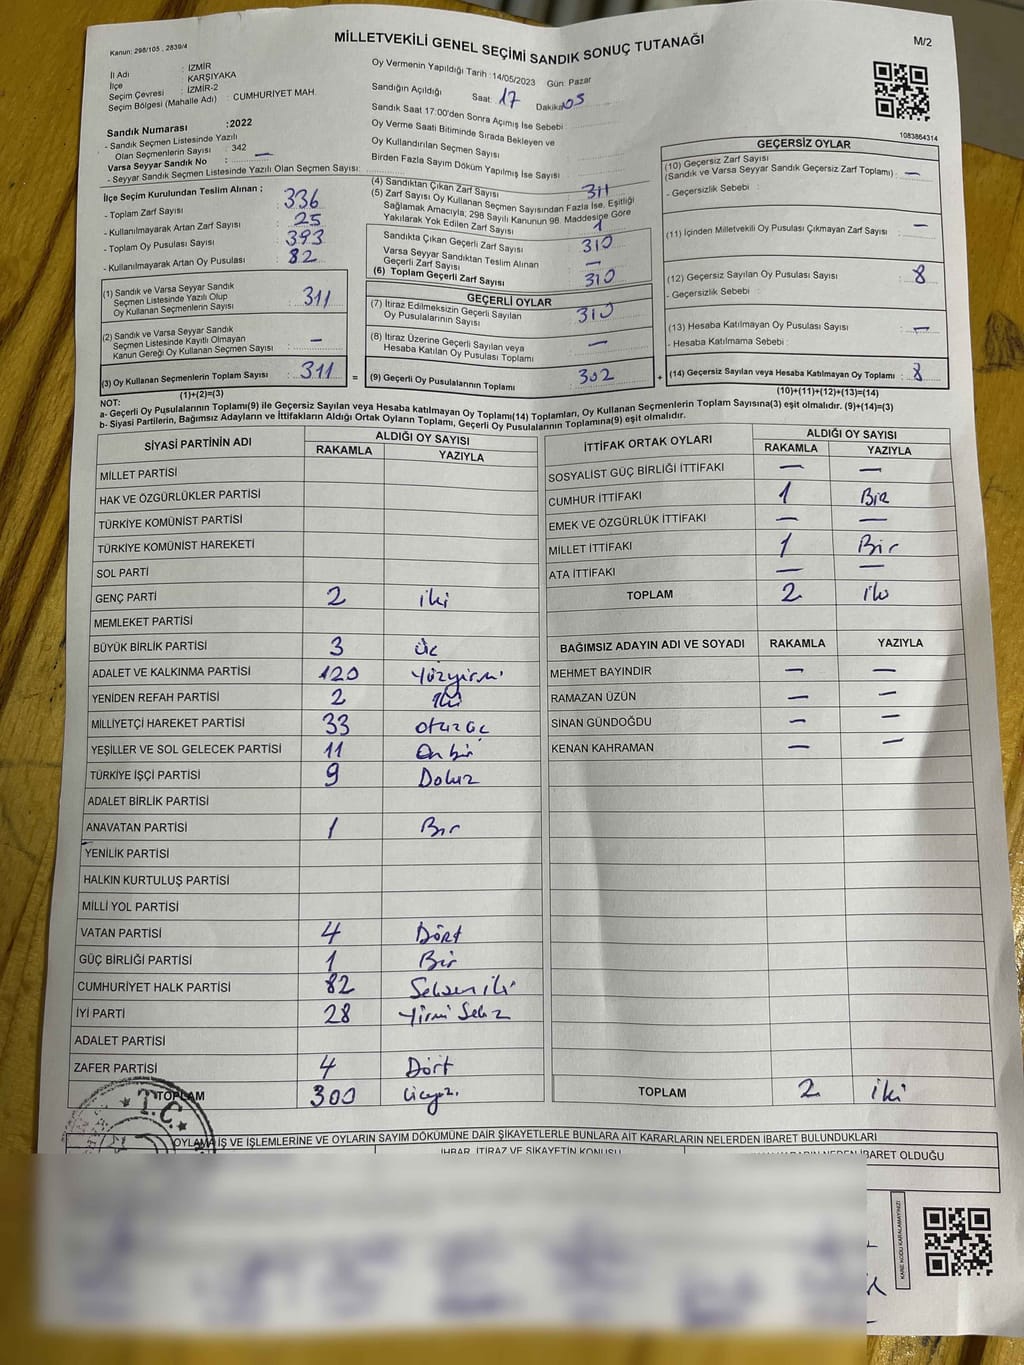 MİLLETVEKİLİ GENEL SEÇİMİ SANDIK SONUÇ TUTANAĞI
M/2
Kanun: 298/105 , 2839/4
İl Adı : İZMİR
İlçe : KARŞIYAKA
Seçim Çevresi : İZMİR-2
Seçim Bölgesi (Mahalle Adı) : CUMHURİYET MAH.
Sandık Numarası :2022
- Sandık Seçmen Listesinde Yazılı
Olan Seçmenlerin Sayısı : 342
Varsa Seyyar Sandık No : —
- Seyyar Sandık Seçmen Listesinde Yazılı Olan Seçmen Sayısı:
Oy Vermenin Yapıldığı Tarih :14/05/2023 Gün: Pazar
Sandığın Açıldığı Saat: 17 Dakika: 05
Sandık Saat 17:00'den Sonra Açımış İse Sebebi :
Oy Verme Saati Bitiminde Sırada Bekleyen ve
Oy Kullandırılan Seçmen Sayısı
Birden Fazla Sayım Döküm Yapılmış İse Sayısı
1083864314
İlçe Seçim Kurulundan Teslim Alınan ;
- Toplam Zarf Sayısı : 336
- Kullanılmayarak Artan Zarf Sayısı : 25
- Toplam Oy Pusulası Sayısı : 393
- Kullanılmayarak Artan Oy Pusulası : 82
(1) Sandık ve Varsa Seyyar Sandık
Seçmen Listesinde Yazılı Olup
Oy Kullanan Seçmenlerin Sayısı : 311
(2) Sandık ve Varsa Seyyar Sandık
Seçmen Listesinde Kayıtlı Olmayan
Kanun Gereği Oy Kullanan Seçmen Sayısı : —
(3) Oy Kullanan Seçmenlerin Toplam Sayısı : 311
(1)+(2)=(3)
(4) Sandıktan Çıkan Zarf Sayısı 311
(5) Zarf Sayısı Oy Kullanan Seçmen Sayısından Fazla İse, Eşitliği
Sağlamak Amacıyla; 298 Sayılı Kanunun 98. Maddesine Göre
Yakılarak Yok Edilen Zarf Sayısı : 1
Sandıkta Çıkan Geçerli Zarf Sayısı 310
Varsa Seyyar Sandıktan Teslim Alınan
Geçerli Zarf Sayısı —
(6) Toplam Geçerli Zarf Sayısı 310
GEÇERLİ OYLAR
(7) İtiraz Edilmeksizin Geçerli Sayılan
Oy Pusulalarının Sayısı : 310
(8) İtiraz Üzerine Geçerli Sayılan veya
Hesaba Katılan Oy Pusulası Toplamı —
= (9) Geçerli Oy Pusulalarının Toplamı : 302
GEÇERSİZ OYLAR
(10) Geçersiz Zarf Sayısı
(Sandık ve Varsa Seyyar Sandık Geçersiz Zarf Toplamı) : —
- Geçersizlik Sebebi :
(11) İçinden Milletvekili Oy Pusulası Çıkmayan Zarf Sayısı —
(12) Geçersiz Sayılan Oy Pusulası Sayısı : 8
- Geçersizlik Sebebi :
(13) Hesaba Katılmayan Oy Pusulası Sayısı : —
- Hesaba Katılmama Sebebi :
+ (14) Geçersiz Sayılan veya Hesaba Katılmayan Oy Toplamı : 8
(10)+(11)+(12)+(13)=(14)
NOT:
a- Geçerli Oy Pusulalarının Toplamı(9) ile Geçersiz Sayılan veya Hesaba katılmayan Oy Toplamı(14) Toplamları, Oy Kullanan Seçmenlerin Toplam Sayısına(3) eşit olmalıdır. (9)+(14)=(3)
b- Siyasi Partilerin, Bağımsız Adayların ve İttifakların Aldığı Ortak Oyların Toplamı, Geçerli Oy Pusulalarının Toplamına(9) eşit olmalıdır.
SİYASİ PARTİNİN ADI ALDIĞI OY SAYISI
RAKAMLA YAZIYLA
MİLLET PARTİSİ
HAK VE ÖZGÜRLÜKLER PARTİSİ
TÜRKİYE KOMÜNİST PARTİSİ
TÜRKİYE KOMÜNİST HAREKETİ
SOL PARTİ
GENÇ PARTİ 2 iki
MEMLEKET PARTİSİ
BÜYÜK BİRLİK PARTİSİ 3 üç
ADALET VE KALKINMA PARTİSİ 120 Yüzyirmi
YENİDEN REFAH PARTİSİ 2 iki
MİLLİYETÇİ HAREKET PARTİSİ 33 otuzüç
YEŞİLLER VE SOL GELECEK PARTİSİ 11 Onbir
TÜRKİYE İŞÇİ PARTİSİ 9 Dokuz
ADALET BİRLİK PARTİSİ
ANAVATAN PARTİSİ 1 Bir
YENİLİK PARTİSİ
HALKIN KURTULUŞ PARTİSİ
MİLLİ YOL PARTİSİ
VATAN PARTİSİ 4 Dört
GÜÇ BİRLİĞİ PARTİSİ 1 Bir
CUMHURİYET HALK PARTİSİ 82 Seksen iki
İYİ PARTİ 28 Yirmi Sekiz
ADALET PARTİSİ
ZAFER PARTİSİ 4 Dört
TOPLAM 300 Üçyüz
İTTİFAK ORTAK OYLARI ALDIĞI OY SAYISI
RAKAMLA YAZIYLA
SOSYALİST GÜÇ BİRLİĞİ İTTİFAKI — —
CUMHUR İTTİFAKI 1 Bir
EMEK VE ÖZGÜRLÜK İTTİFAKI — —
MİLLET İTTİFAKI 1 Bir
ATA İTTİFAKI — —
TOPLAM 2 iki
BAĞIMSIZ ADAYIN ADI VE SOYADI RAKAMLA YAZIYLA
MEHMET BAYINDIR — —
RAMAZAN ÜZÜN — —
SİNAN GÜNDOĞDU — —
KENAN KAHRAMAN — —
TOPLAM 2 iki
T.C.
OYLAMA İŞ VE İŞLEMLERİNE VE OYLARIN SAYIM DÖKÜMÜNE DAİR ŞİKAYETLERLE BUNLARA AİT KARARLARIN NELERDEN İBARET BULUNDUKLARI
İHBAR, İTİRAZ VE ŞİKAYETİN KONUSU
İBARET OLDUĞU
KARE KODU KARALAMAYINIZ!